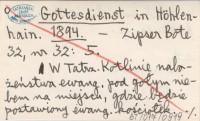 Gottesdienst in Höhlen-
hain. 1894. — Zipser Bote
32, nr 32: 5.
W Tatrz. Kotlinie nabo-
żeństwa ewang. pod gołym nie-
bem na miejscu, gdzie będzie
postawiony ewang. kościółek